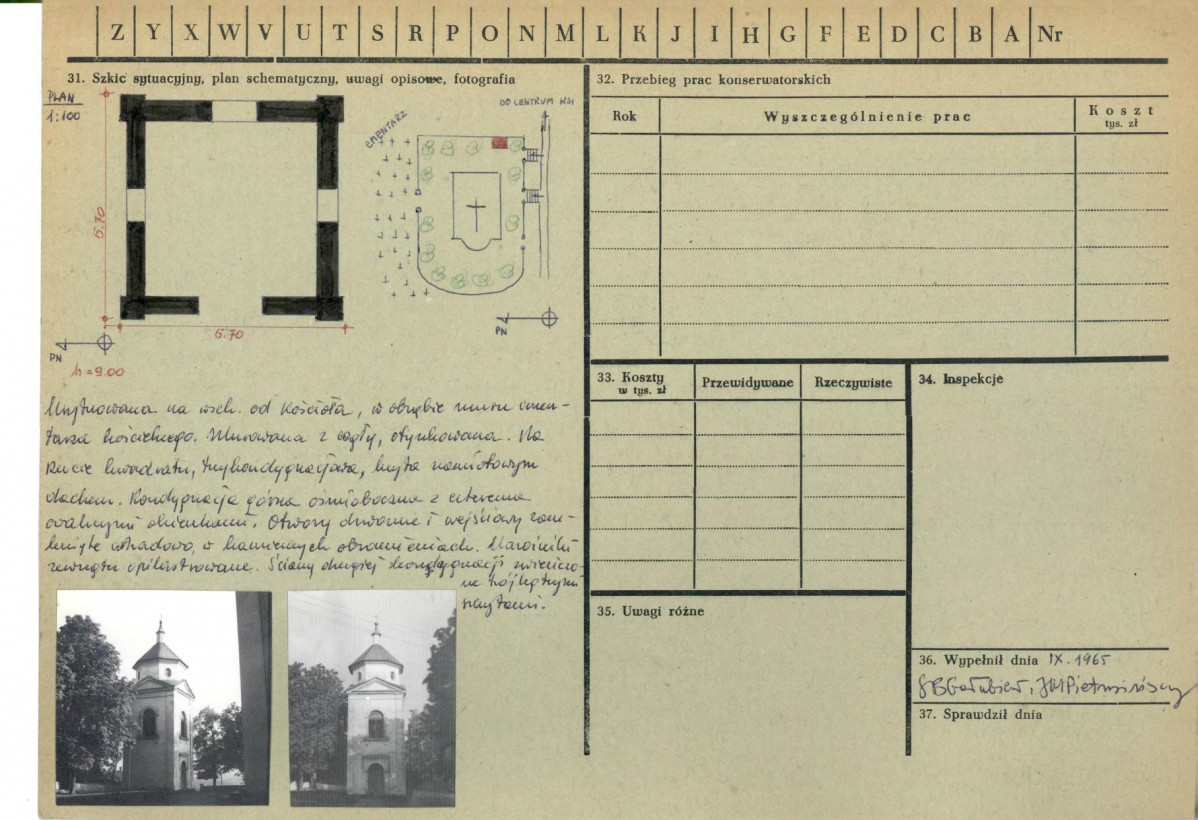 Z Y X W V U T S R P O N M L K J I H G F E D C B A Nr
31. Szkic sytuacyjny, plan schematyczny, uwagi opisowe, fotografia
PLAN
1:100
5.70
5.70
PN
h = 9.00
CMENTARZ
DO CENTRUM WSI
PN
Usytuowana na wsch. od kościoła, w obrębie muru cmen-
tarza kościelnego. Murowana z cegły, otynkowana. Na
rzucie kwadratu, trzykondygnacjowa, kryta namiotowym
dachem. Kondygnacja górna ośmioboczna z czterema
owalnymi okienkami. Otwory dzwonne i wejściowy zam-
knięte arkadowo, w kamiennych obramieniach. Narożniki
zewnątrz opilastrowane. Ściany drugiej kondygnacji zwieńczo-
ne trójkątnymi
szczytami.
32. Przebieg prac konserwatorskich
Rok
Wyszczególnienie prac
Koszt
tys. zł
33. Koszty
w tys. zł
Przewidywane
Rzeczywiste
34. Inspekcje
35. Uwagi różne
36. Wypełnił dnia IX. 1965
37. Sprawdził dnia